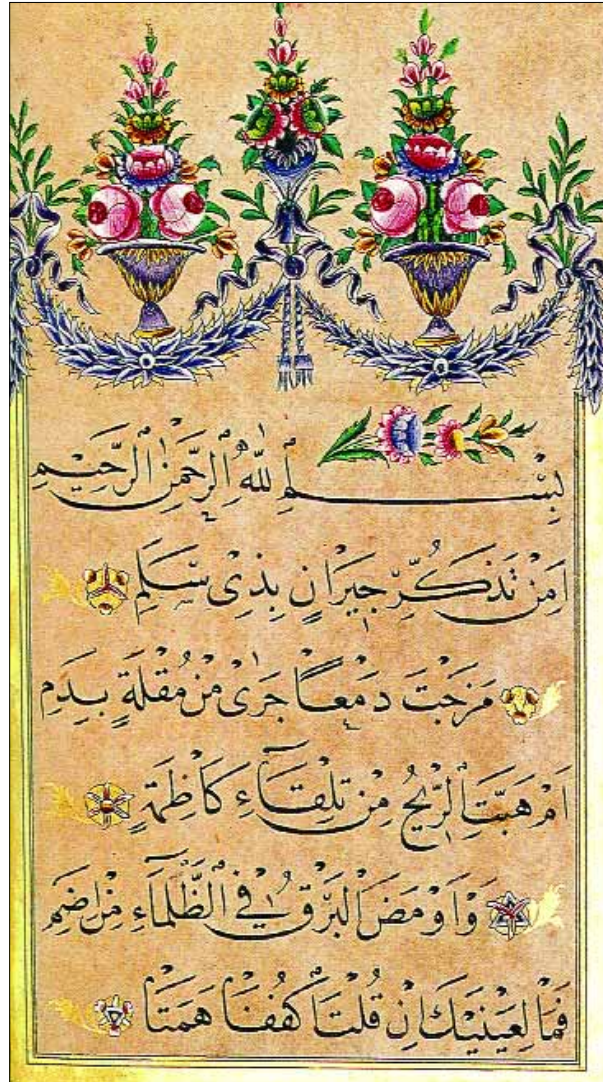 بِسْمِ اللّٰهِ الرَّحْمٰنِ الرَّحِيمِ
اَمِنْ تَذَكُّرِ جِيرَانٍ بِذِى سَلَمِ
مَزَجْتَ دَمْعًا جَرٰى مِنْ مُقْلَةٍ بِدَمِ
اَمْ هَبَّتِ الرِّيحُ مِنْ تِلْقَآءِ كَاظِمَةٍ
وَاَوْمَضَ الْبَرْقُ فِي الظَّلْمَآءِ مِنْ اِضَمِ
فَمَا لِعَيْنَيْكَ اِنْ قُلْتَ اكْفُفَا هَمَتَا